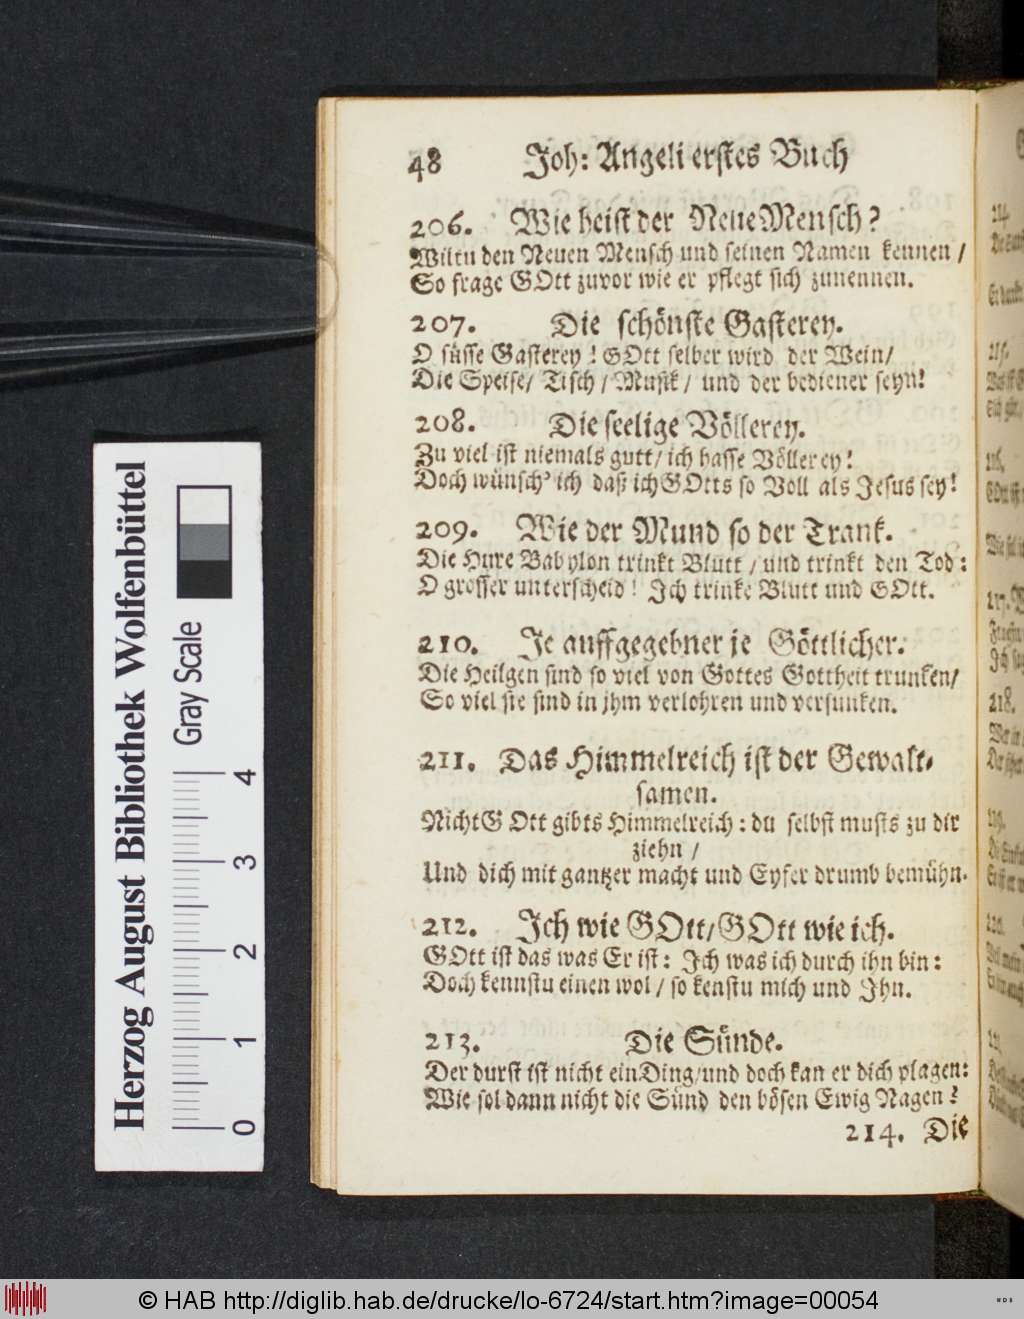 48 Joh: Angeli erstes Buch
206. Wie heist der Neue Mensch?
Wiltu den Neuen Mensch und seinen Namen kennen /
So frage GOtt zuvor wie er pflegt sich zunennen.
207. Die schönste Gasterey.
O süsse Gasterey! GOtt selber wird der Wein/
Die Speise/ Tisch / Musik / und der bediener seyn!
208. Die seelige Völlerey.
Zu viel ist niemals gutt/ ich hasse Völlerey!
Doch wünsch' ich daß ich GOtts so Voll als Jesus sey!
209. Wie der Mund so der Trank.
Die Hure Babylon trinkt Blutt / und trinkt den Tod:
O grosser unterscheid! Jch trinke Blutt und GOtt.
210. Je auffgegebner je Göttlicher.
Die Heilgen sind so viel von Gottes Gottheit trunken/
So viel sie sind in jhm verlohren und versunken.
211. Das Himmelreich ist der Gewalt-
samen.
Nicht GOtt gibts Himmelreich: du selbst musts zu dir
ziehn /
Und dich mit gantzer macht und Eyfer drumb bemühn.
212. Jch wie GOtt/GOtt wie ich.
GOtt ist das was Er ist: Jch was ich durch ihn bin:
Doch kennstu einen wol / so kenstu mich und Jhn.
213. Die Sünde.
Der durst ist nicht ein Ding/und doch kan er dich plagen:
Wie sol dann nicht die Sünd den bösen Ewig Nagen?
214. Die
Herzog August Bibliothek Wolfenbüttel
Gray Scale
0 1 2 3 4
© HAB http://diglib.hab.de/drucke/lo-6724/start.htm?image=00054